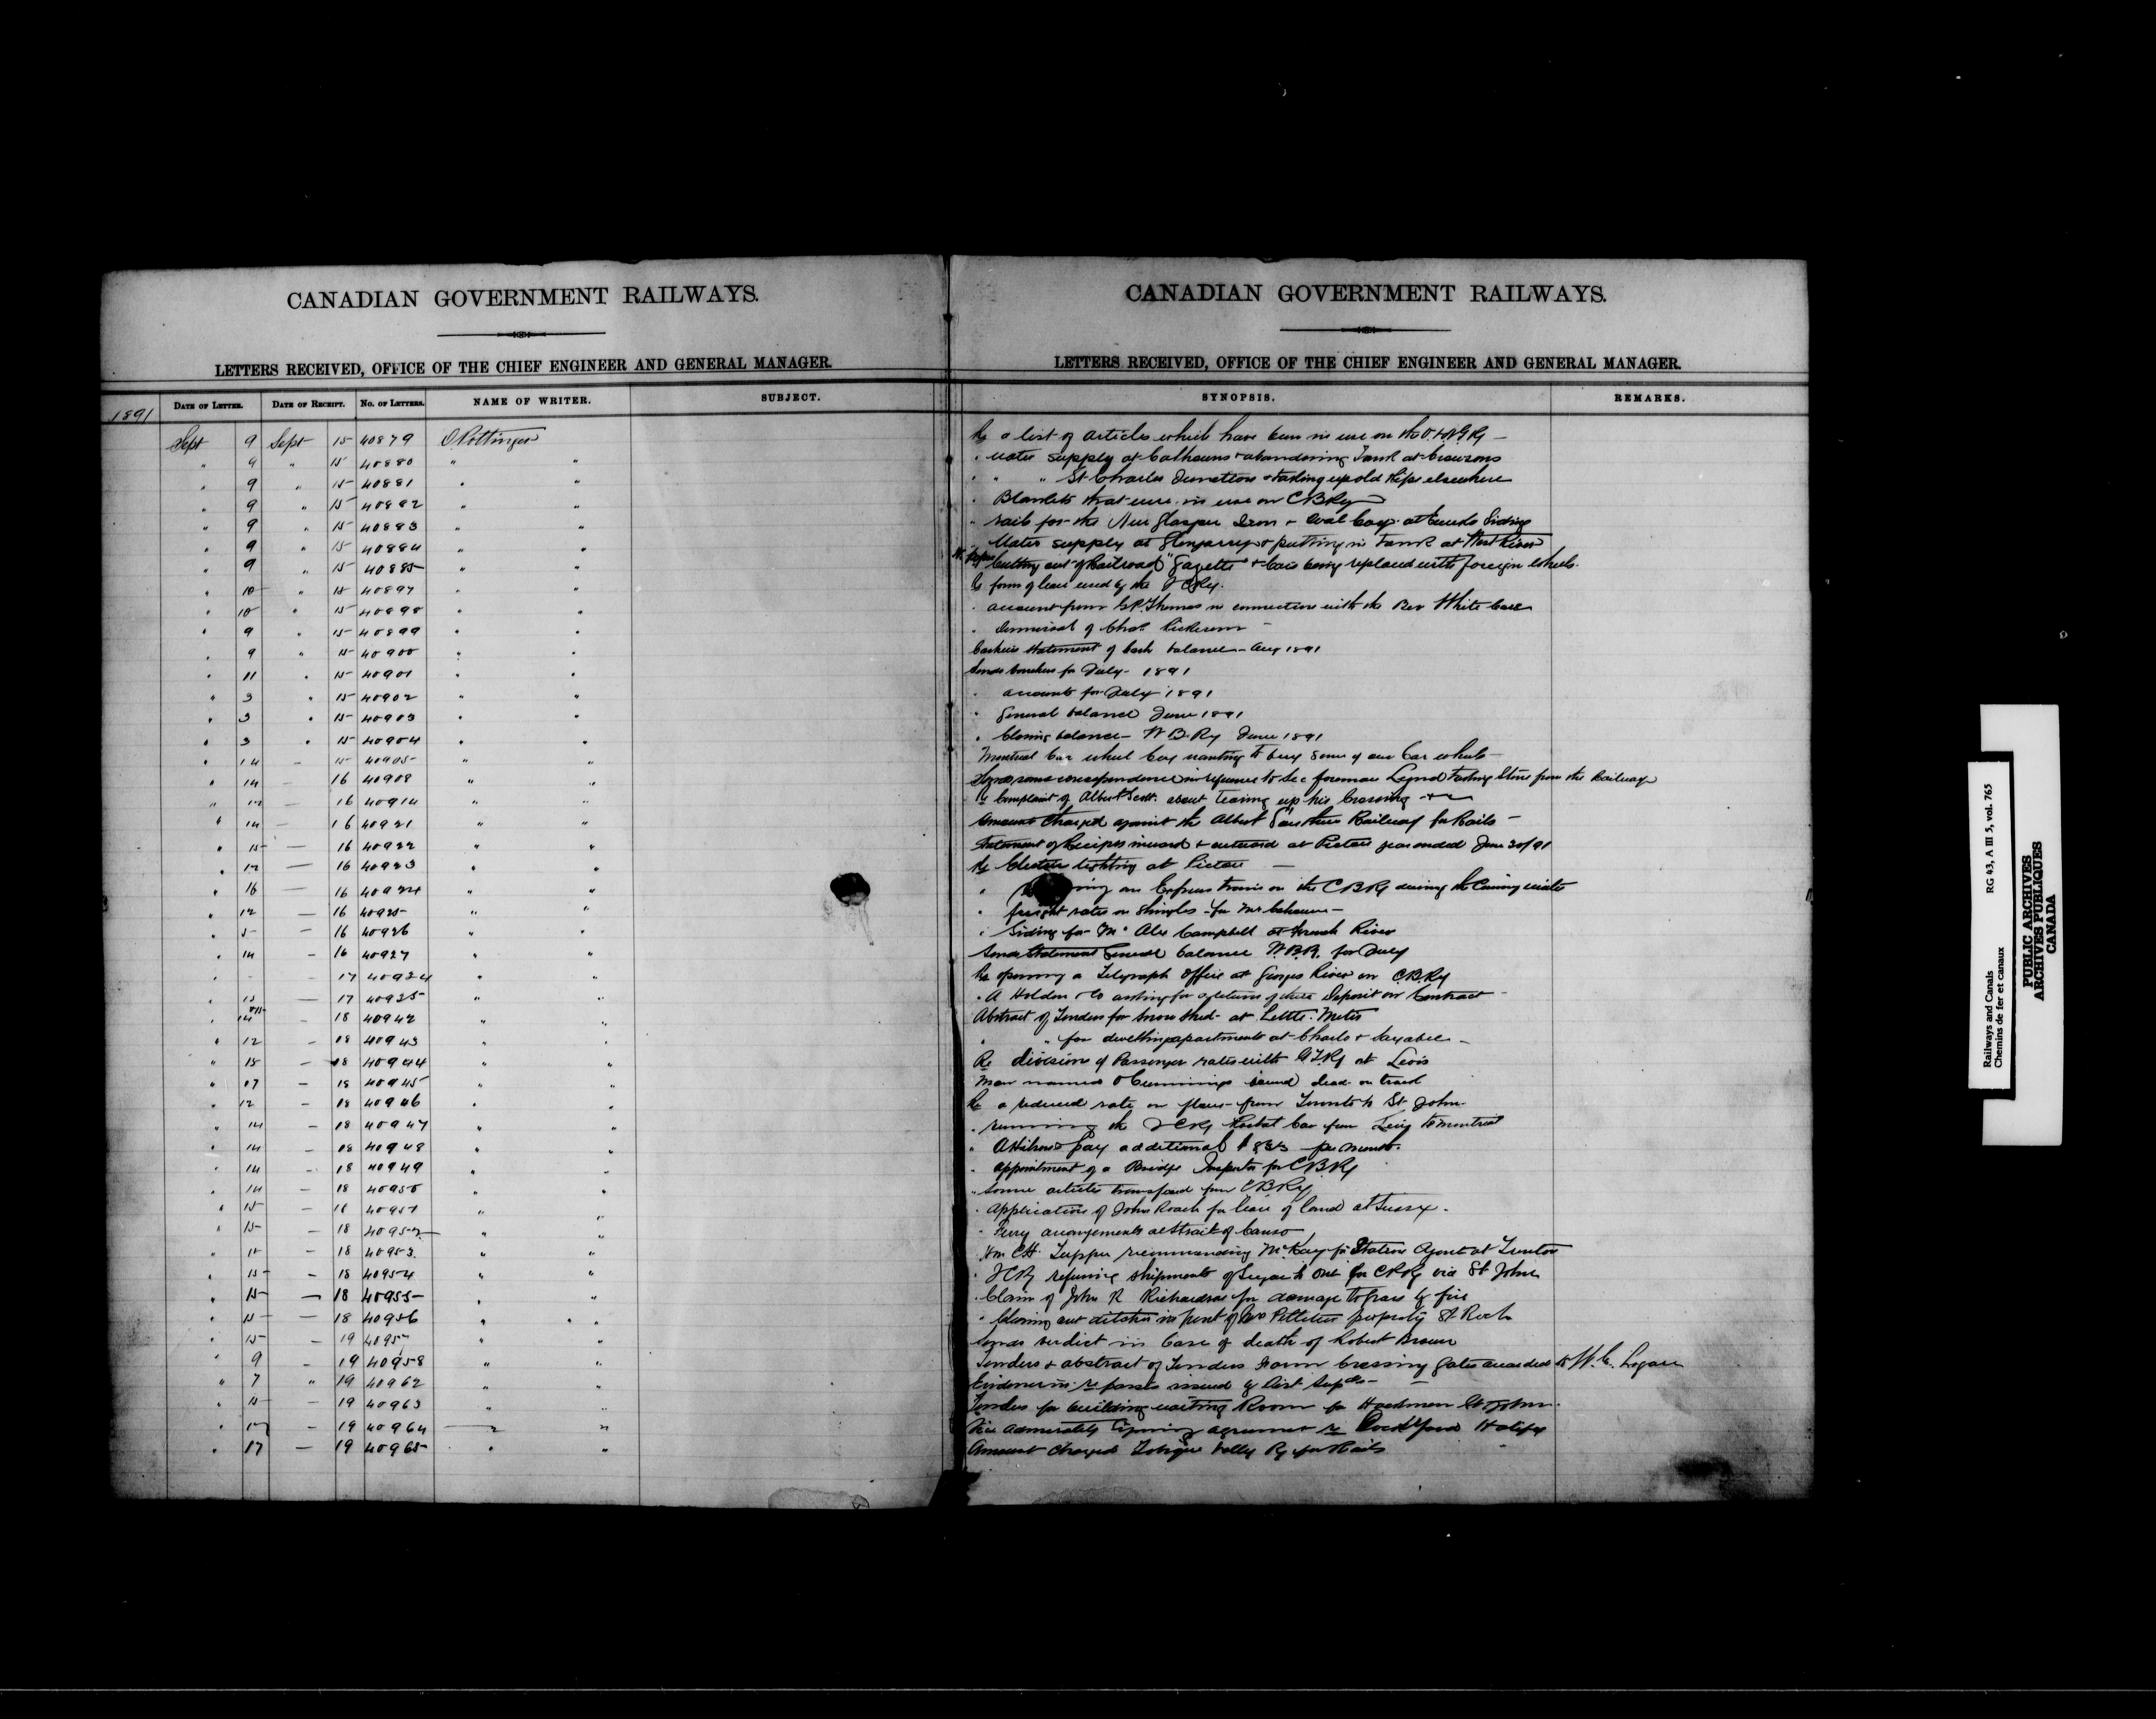 CANADIAN GOVERNMENT RAILWAYS.
LETTERS RECEIVED, OFFICE OF THE CHIEF ENGINEER AND GENERAL MANAGER.
1891 DATE OF LETTER. DATE OF RECEIPT. NO. OF LETTERS. NAME OF WRITER. SUBJECT.
Sept 9 Sept 15 40879 D Pottinger
" 9 " 15 40880 " "
" 9 " 15 40881 " "
" 9 " 15 40882 " "
" 9 " 15 40883 " "
" 9 " 15 40884 " "
" 9 " 15 40885 " "
" 10 " 15 40897 " "
" 10 " 15 40898 " "
" 9 " 15 40899 " "
" 9 " 15 40900 " "
" 11 " 15 40901 " "
" 3 " 15 40902 " "
" 3 " 15 40903 " "
" 3 " 15 40904 " "
" 14 - 15 40905 " "
" 14 - 16 40908 " "
" 12 - 16 40914 " "
" 14 - 16 40921 " "
" 15 - 16 40922 " "
" 12 - 16 40923 " "
" 16 - 16 40924 " "
" 12 - 16 40925 " "
" 5 - 16 40926 " "
" 14 - 16 40927 " "
" - - 17 40934 " "
" 15 - 17 40935 " "
" 14 - 18 40942 " "
" 12 - 18 40943 " "
" 15 - 18 40944 " "
" 17 - 18 40945 " "
" 12 - 18 40946 " "
" 14 - 18 40947 " "
" 14 - 18 40948 " "
" 14 - 18 40949 " "
" 14 - 18 40950 " "
" 15 - 18 40951 " "
" 15 - 18 40952 " "
" 15 - 18 40953 " "
" 15 - 18 40954 " "
" 15 - 18 40955 " "
" 15 - 18 40956 " "
" 15 - 19 40957 " "
" 9 - 19 40958 " "
" 7 " 19 40962 " "
" 15 - 19 40963 " "
" 17 - 19 40964 " "
" 17 - 19 40965 " "
CANADIAN GOVERNMENT RAILWAYS.
LETTERS RECEIVED, OFFICE OF THE CHIEF ENGINEER AND GENERAL MANAGER.
SYNOPSIS. REMARKS.
Re a list of articles which have been in use on the
" Water supply at Calhouns & abandoning Tank at
" " " St Charles Junction & taking up old Pipe elsewhere
" Blankets that were in use on C B Ry
" rails for the New Glasgow Iron & Coal Coy. at Siding
" Water supply at Glengarry & putting in Tank at West River
cutting out of Railroad "Gazette" & Cars being replaced with foreign wheels.
Re form of lease used by the I C Ry.
" account from Thomas in connection with the Rev White Case
" Dismissal of Chas.
Cashiers statement of Cash balance - Aug 1891
Sends vouchers for July - 1891
" accounts for July 1891
" General balance June 1891
" Closing balance - W B. Ry June 1891
Montreal Car wheel Coy wanting to buy some of our Car wheels
Sends some correspondence in reference to Sec foreman taking Stone from the Railway
Re Complaint of Albert Scott about tearing up his Crossing
Amount charged against the Albert Southern Railway for Rails -
Statement of Receipts inward & outward at Pictou year ended June 30/91
Re Electric lighting at Pictou -
" an Express train on the C B Ry during the Coming winter
" freight rates on Shingles - for Mr
" Siding for Mr Alex Campbell at French River
Sends Statement General balance W.B.R. for July
Re opening a Telegraph Office at Georges River on C.B.Ry
" A Holden & Co asking for a return of their Deposit on Contract
Abstract of Tenders for Snow Shed - at Little Metis
" " for dwelling apartments at Charlo & Sayabec -
Re division of Passenger rates with G.T.Ry at Levis
Man named Cummings found dead on track
Re a reduced rate on flour from Toronto to St John.
" running the I C Ry Postal Car from Levis to Montreal
" pay additional per month.
" Appointment of a Bridge Inspector for C B Ry
" Some articles transferred from C B Ry
" Application of John Roach for lease of land at Sussex.
" Ferry arrangements at Strait of Canso
Hon C H. Tupper recommending McKay for Station Agent at Truro
" I C Ry refusing shipments of Sugar to for C P Ry via St John
" Claim of John R Richardson for damage to by fire
" Cleaning out ditches in front of Pelletier property St Roch
Sends verdict in Case of death of Robert Brown
Tenders & abstract of Tenders Crossing Gates awarded to W. C. Logan
Evidence in re passes issued by Dist Supts -
Tenders for building waiting Room for St John.
Vice Admiralty agreement re Dockyard Halifax
Amount charged Tobique Valley Ry for Rails
Railways and Canals RG 43, A III 5, vol. 765
Chemins de fer et canaux
PUBLIC ARCHIVES
ARCHIVES PUBLIQUES
CANADA